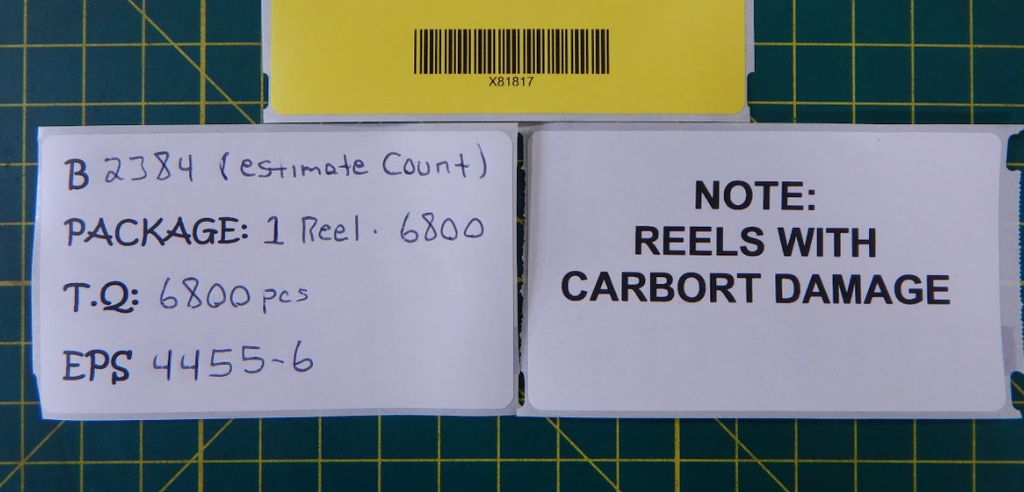 X81817
B 2384 (estimate Count)
PACKAGE: 1 Reel. 6800
T.Q: 6800 pcs
EPS 4455-6
NOTE:
REELS WITH
CARBORT DAMAGE